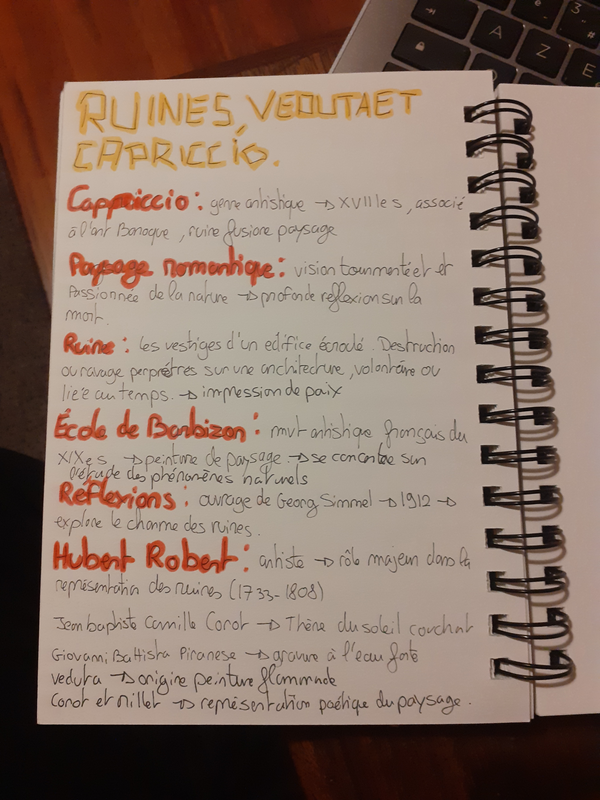 RUINES, VEDUTA ET
CAPRICCIO.
Cappriccio : genre artistique → XVIIIe s, associé
à l'art Baroque, ruine fusione paysage
Paysage romantique : vision tourmentée et
passionnée de la nature → profonde reflexion sur la
mort.
Ruine : les vestiges d'un edifice écroulé. Destruction
ou ravage perpétrés sur une architecture, volontaire ou
liée au temps. → impression de paix
École de Barbizon : mvt artistique français du
XIXe s → peinture de paysage. → se concentre sur
l'étude des phénomènes naturels
Réflexions : ouvrage de Georg Simmel → 1912 →
explore le charme des ruines.
Hubert Robert : artiste → rôle majeur dans la
représentation des ruines (1733-1808)
Jean baptiste Camille Corot → Thème du soleil couchant
Giovanni Battista Piranese → gravure à l'eau forte
veduta → origine peinture flammande
Corot et Millet → représentation poétique du paysage.
A
Z
E